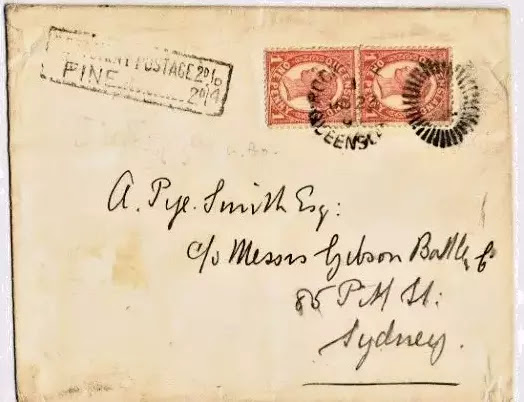 POSTAGE 2D
FINE 2D
QUEENSL
A. Pye. Smith Esq:
c/o Messrs Gibson Battle &
85 P M St:
Sydney.